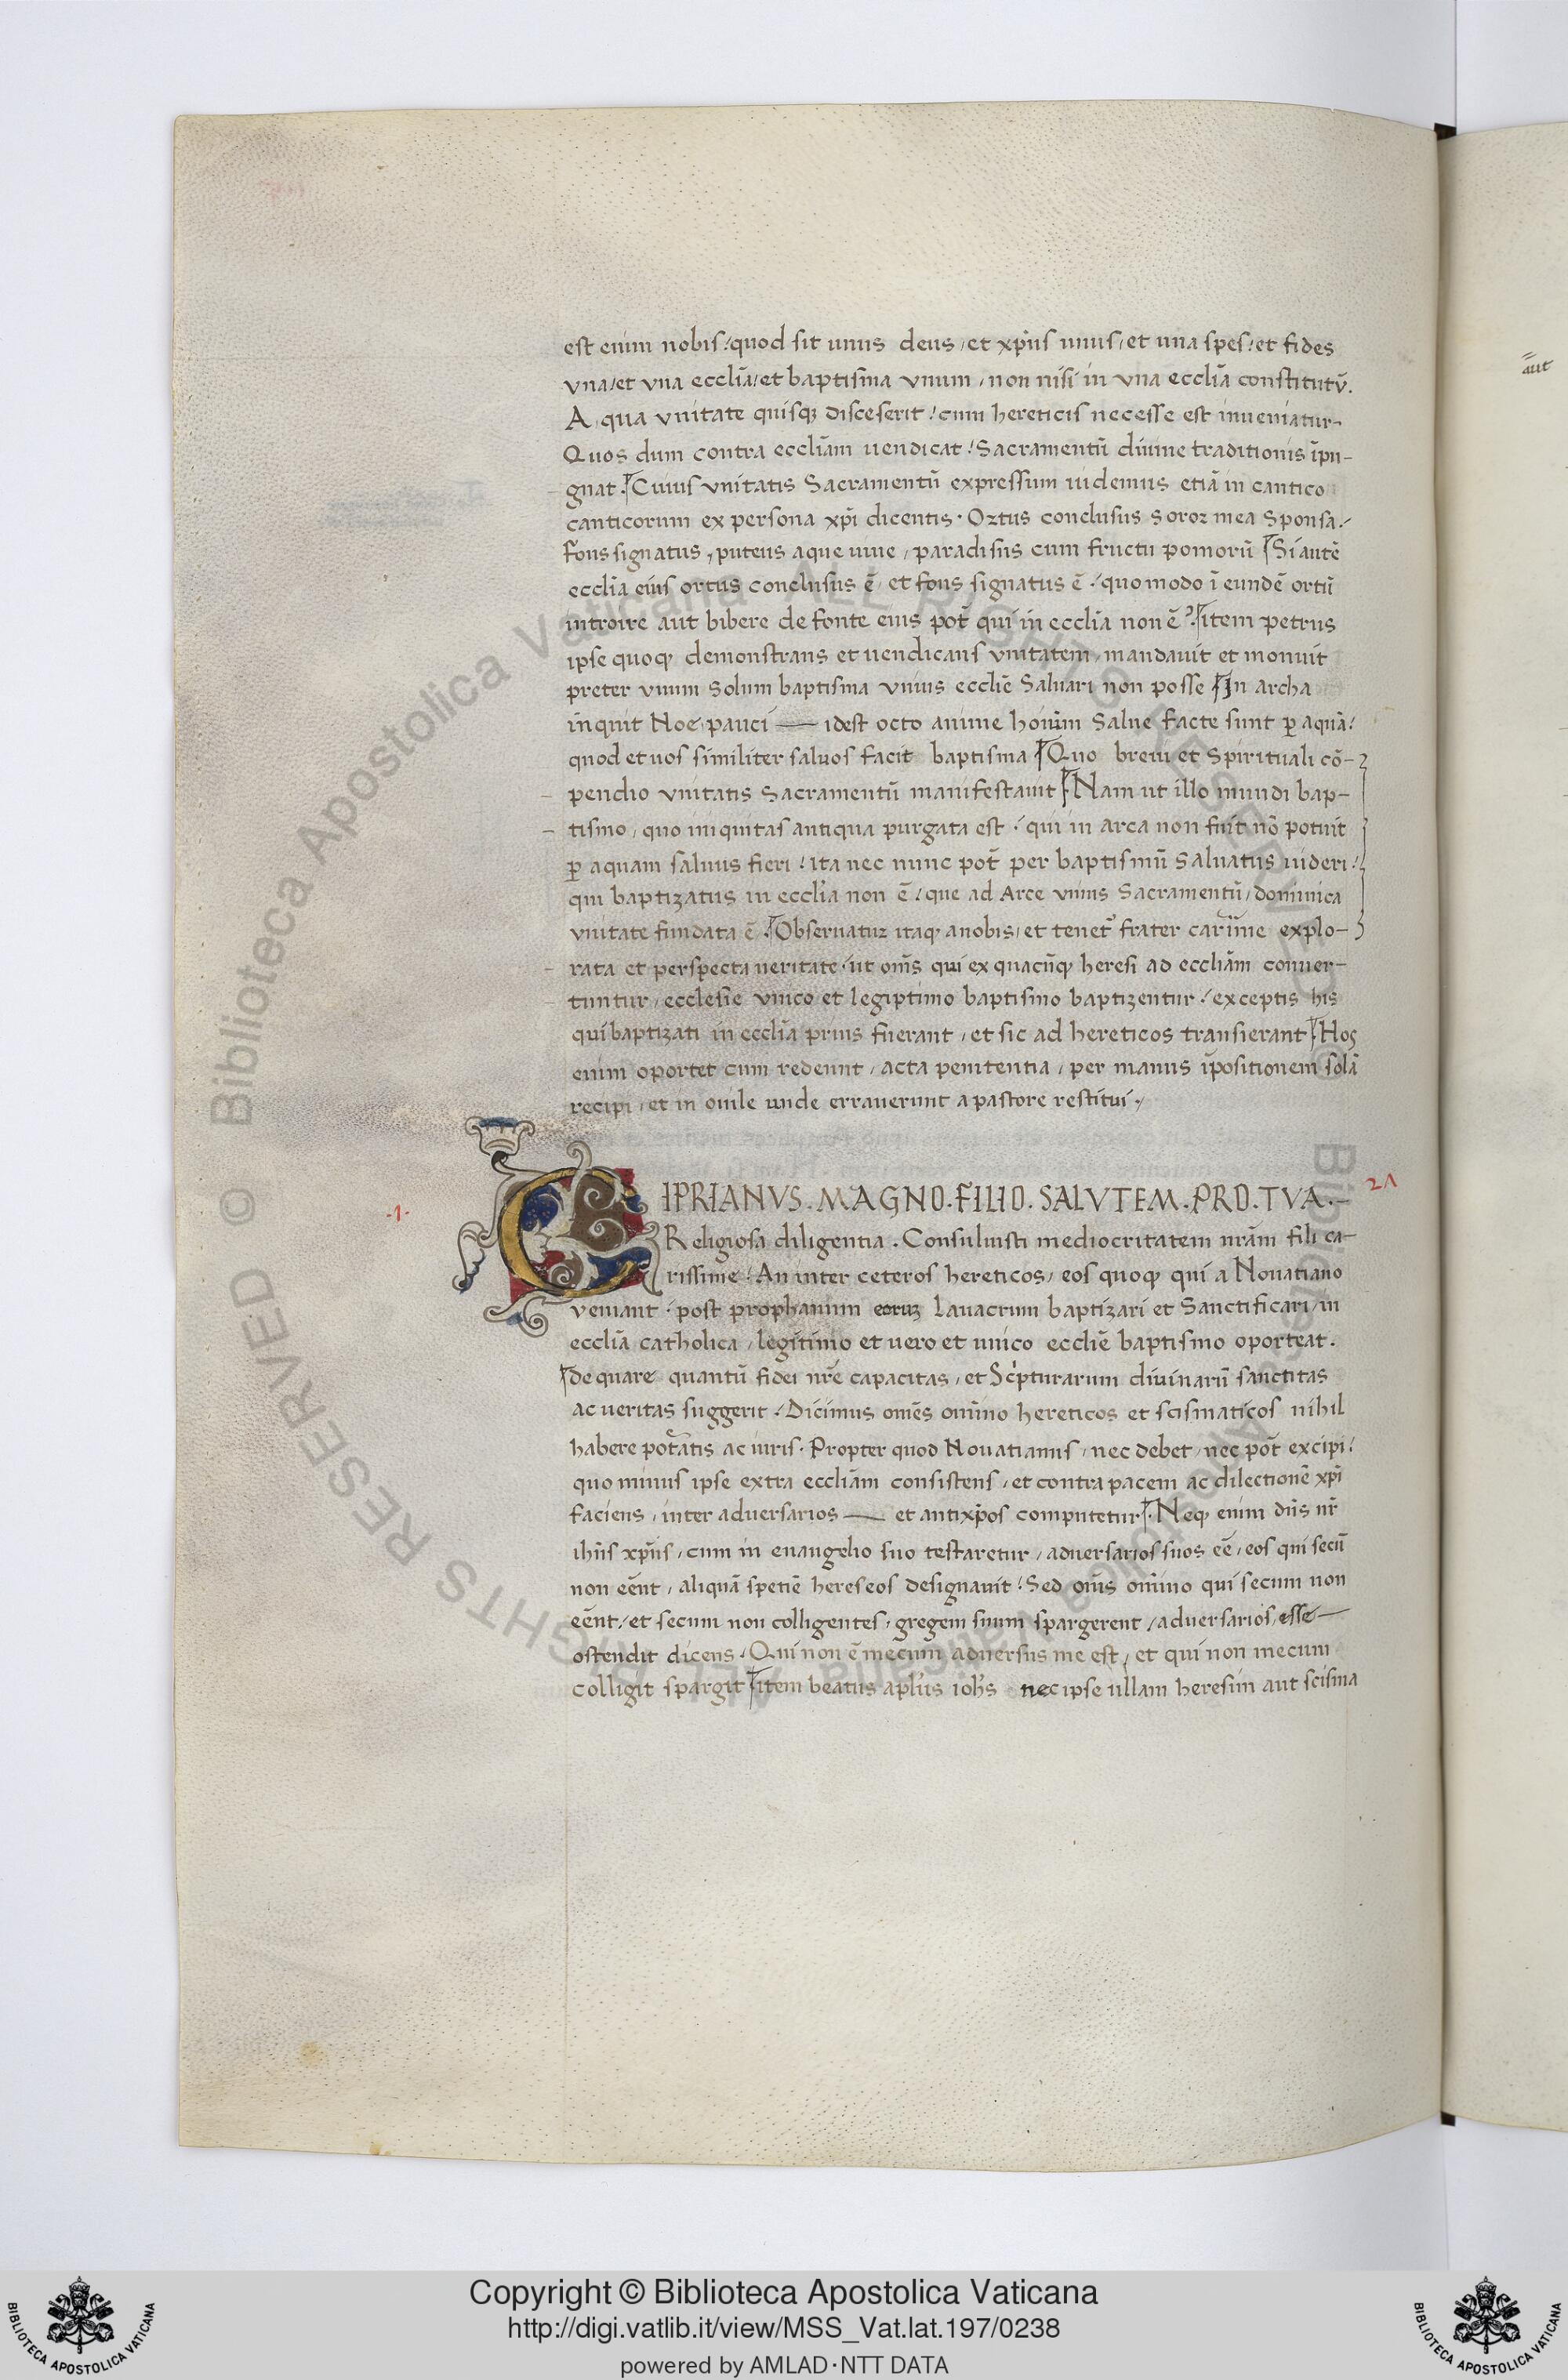 est enim nobis / quod sit unus deus / et xp̄us unus / et una spes / et fides
vna / et vna eccliā / et baptisma vnum / non nisi in vna ecclīa constitutū.
A qua vnitate quisq; disceserit / cum hereticis necesse est inueniatur-
Quos dum contra eccliām uendicat / Sacramentū diuine traditionis īpu-
gnat. Cuius vnitatis Sacramentū expressum uidemus etiā in cantico
canticorum ex persona xp̄i dicentis · Ortus conclusus soror mea Sponsa /
Fons signatus, puteus aque uiue, paradisus cum fructu pomorū Si autē
ecclīa eius ortus conclusus ē, et fons signatus ē / quo modo ī eundē ortū
introire aut bibere de fonte eius pot̄ qui in ecclīa non ē? item petrus
ipse quoq; demonstrans et uendicans vnitatem, mandauit et monuit
preter vnum solum baptisma vnius ecclīe Saluari non posse In archa
inquit Noe, pauci — idest octo anime homīm Salue facte sunt p̱ aquā /
quod et uos similiter saluos facit baptisma Quo breui et Spirituali cō-
pendio vnitatis Sacramentū manifestauit Nam ut illo mundi bap-
tismo, quo iniquitas antiqua purgata est / qui in arca non fuit nō potuit
p̱ aquam saluus fieri / ita nec nunc pot̄ per baptismū Saluatus uideri /
qui baptizatus in ecclīa non ē / que ad Arce vnius Sacramentū, dominica
vnitate fundata ē. Obseruatur itaq; a nobis, et tenet̄ frater carīme explo-
rata et perspecta ueritate / ut om̄s qui ex quacūq; heresi ad eccliām conuer-
tuntur, ecclesie vnico et legiptimo baptismo baptizentur / exceptis his
qui baptizati in ecclīa prius fuerant, et sic ad hereticos transierant Hos
enim oportet cum redeunt, acta penitentia, per manus īpositionem solā
recipi, et in ouile unde errauerunt a pastore restitui /
-1-
21
CIPRIANVS . MAGNO . FILIO . SALVTEM . PRO . TVA .-
Religiosa diligentia . Consuluisti mediocritatem nrām fili ca-
rissime / An inter ceteros hereticos, eos quoq; qui a Nouatiano
veniant / post prophanum eorum lauacrum baptizari et Sanctificari, in
ecclīa catholica, legitimo et uero et unico ecclīe baptismo oporteat.
de quare quantū fidei nrē capacitas, et Scripturarum diuinarū sanctitas
ac ueritas suggerit / Dicimus om̄es om̄ino hereticos et scismaticos nihil
habere potātis ac iuris. Propter quod Nouatianus, nec debet, nec pot̄ excipi /
quo minus ipse extra eccliām consistens, et contra pacem ac dilectionē xp̄i
faciens, inter aduersarios — et antixp̄os computetur. Neq; enim dn̄s nr̄
ihūs xp̄us, cum in euangelio suo testaretur, aduersarios suos eē, eos qui secū
non eēnt, aliquā spetiē hereseos designauit / Sed om̄s om̄ino qui secum non
eēnt / et secum non colligentes, gregem suum spargerent, aduersarios esse —
ostendit dicens / Qui non ē mecum aduersus me est, et qui non mecum
colligit spargit item beatus apl̄us ioh̄s nec ipse ullam heresim aut scisma
aut
Copyright © Biblioteca Apostolica Vaticana
http://digi.vatlib.it/view/MSS_Vat.lat.197/0238
powered by AMLAD·NTT DATA
BIBLIOTECA APOSTOLICA VATICANA
BIBLIOTECA APOSTOLICA VATICANA
© Biblioteca Apostolica Vaticana ALL RIGHTS RESERVED
© Biblioteca Apostolica Vaticana ALL RIGHTS RESERVED